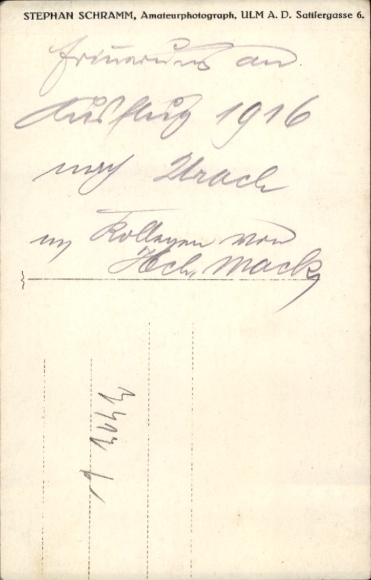 STEPHAN SCHRAMM, Amateurphotograph, ULM A. D. Sattlergasse 6.
Erinnerung an
Ausflug 1916
nach Urach
Kollegen von
Hch. Mack